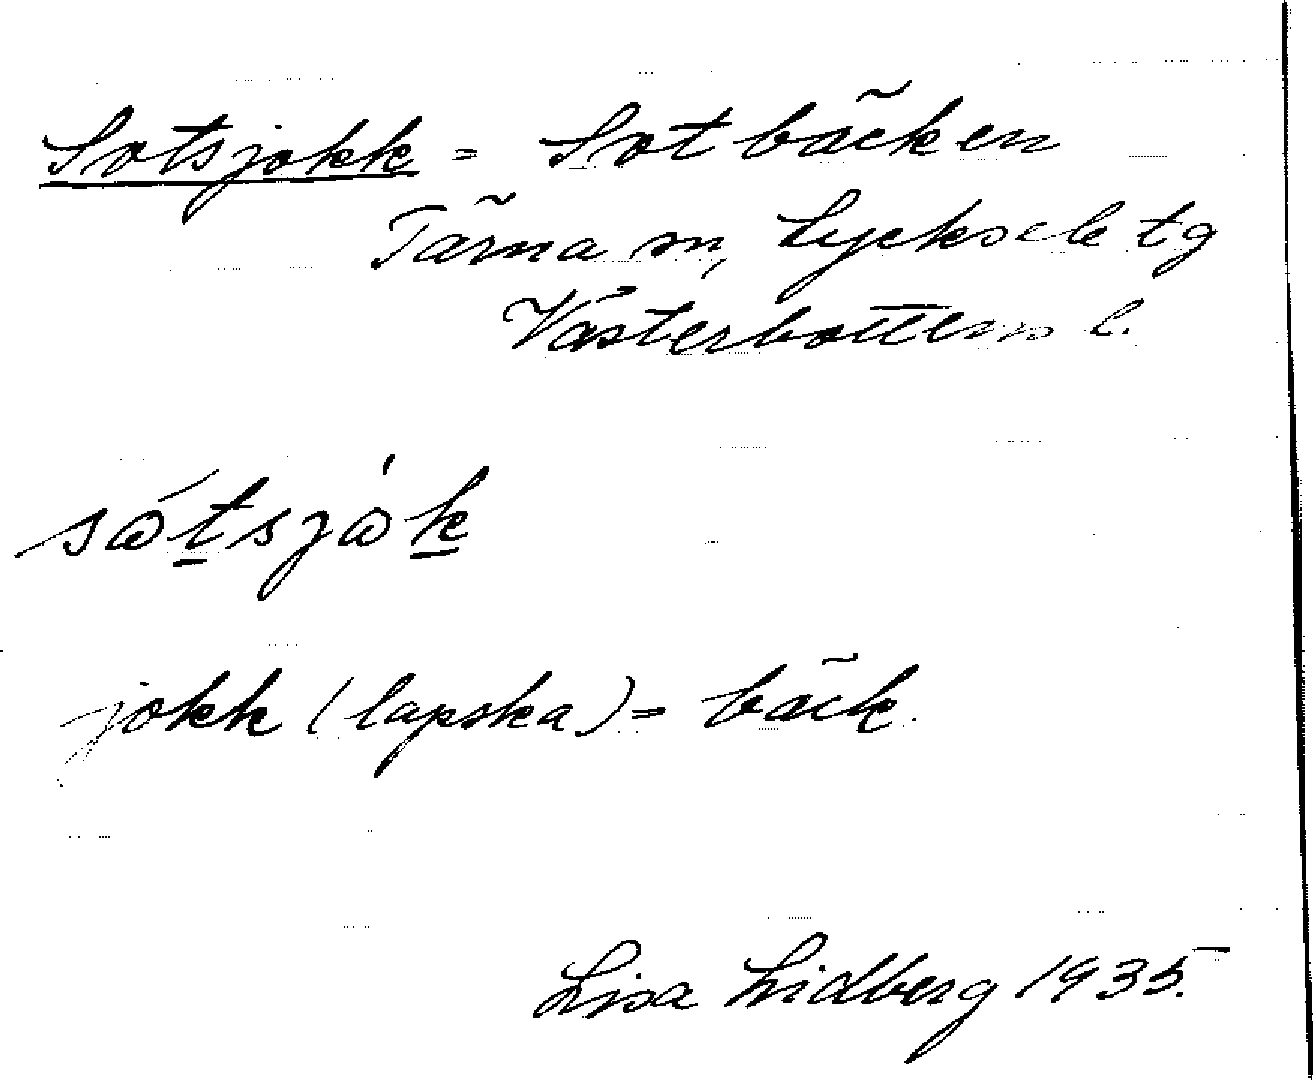 Sotsjokk = Sotbäcken
Tärna sn, Lycksele tg
Västerbottens l.
sótsjò'k
jokk (lapska) = bäck.
Lisa Lidberg 1935.